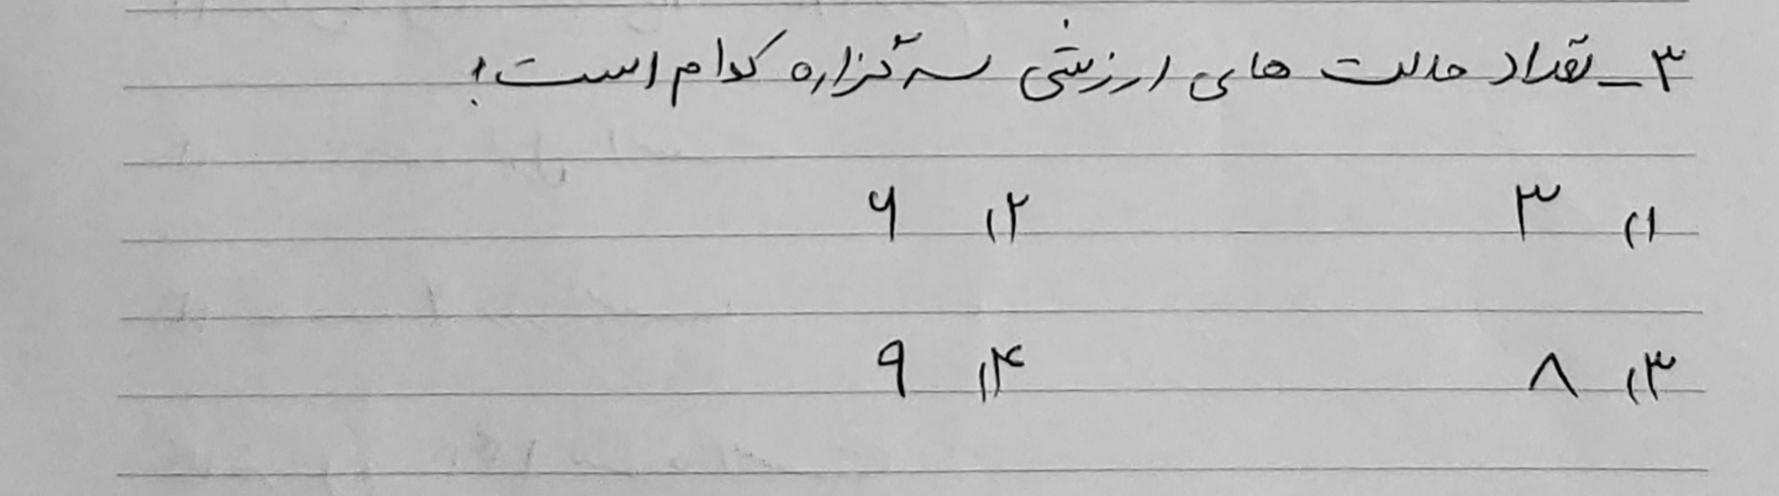 ۳_ تعداد حالت های ارزشی سه گزاره کدام است؟
۱) ۳ ۲) ۶
۳) ۸ ۴) ۹